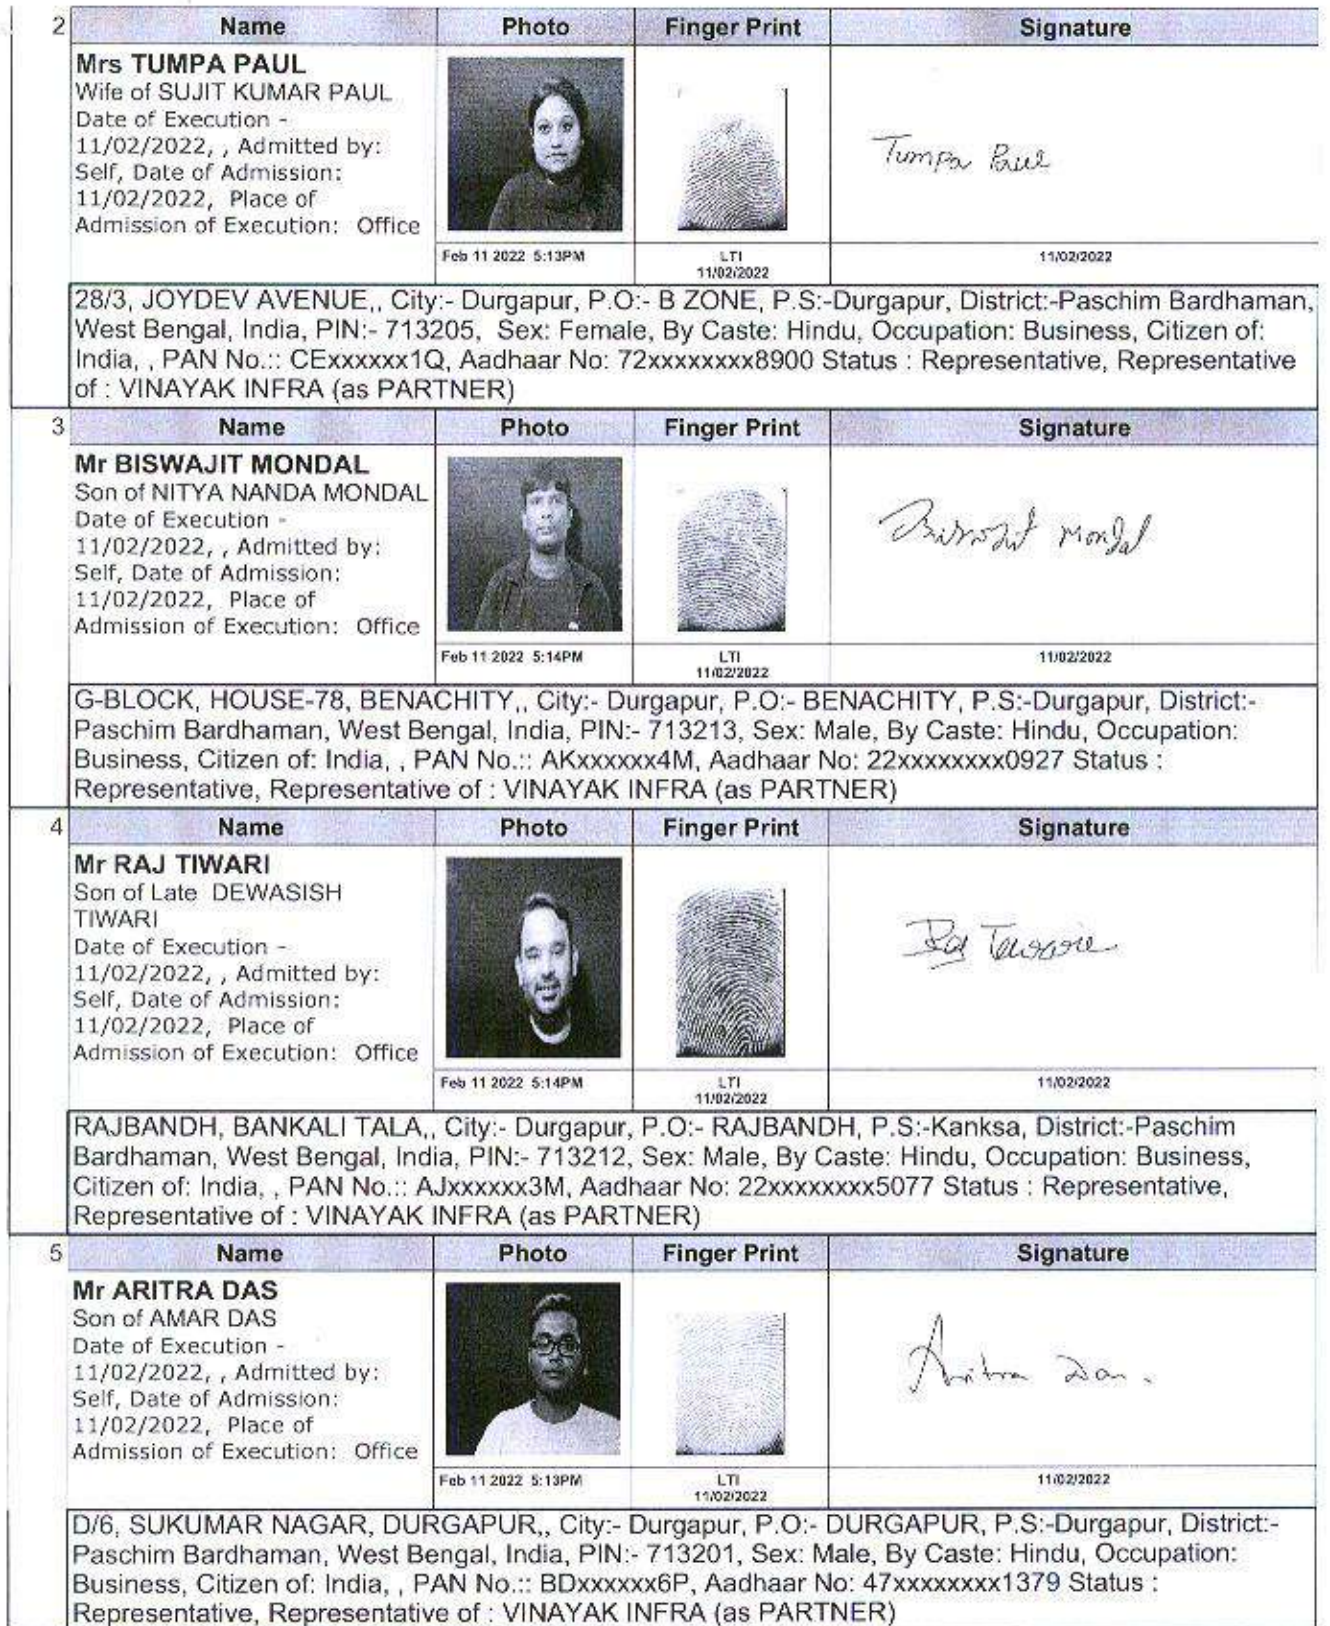 2 Name Photo Finger Print Signature
Mrs TUMPA PAUL
Wife of SUJIT KUMAR PAUL
Date of Execution -
11/02/2022, , Admitted by:
Self, Date of Admission:
11/02/2022, Place of
Admission of Execution: Office
Tumpa Paul
Feb 11 2022 5:13PM LTI 11/02/2022
11/02/2022
28/3, JOYDEV AVENUE,, City:- Durgapur, P.O:- B ZONE, P.S:-Durgapur, District:-Paschim Bardhaman,
West Bengal, India, PIN:- 713205, Sex: Female, By Caste: Hindu, Occupation: Business, Citizen of:
India, , PAN No.:: CExxxxxx1Q, Aadhaar No: 72xxxxxxxx8900 Status : Representative, Representative
of : VINAYAK INFRA (as PARTNER)
3 Name Photo Finger Print Signature
Mr BISWAJIT MONDAL
Son of NITYA NANDA MONDAL
Date of Execution -
11/02/2022, , Admitted by:
Self, Date of Admission:
11/02/2022, Place of
Admission of Execution: Office
Biswajit Mondal
Feb 11 2022 5:14PM LTI 11/02/2022
11/02/2022
G-BLOCK, HOUSE-78, BENACHITY,, City:- Durgapur, P.O:- BENACHITY, P.S:-Durgapur, District:-
Paschim Bardhaman, West Bengal, India, PIN:- 713213, Sex: Male, By Caste: Hindu, Occupation:
Business, Citizen of: India, , PAN No.:: AKxxxxxx4M, Aadhaar No: 22xxxxxxxx0927 Status :
Representative, Representative of : VINAYAK INFRA (as PARTNER)
4 Name Photo Finger Print Signature
Mr RAJ TIWARI
Son of Late DEWASISH
TIWARI
Date of Execution -
11/02/2022, , Admitted by:
Self, Date of Admission:
11/02/2022, Place of
Admission of Execution: Office
Raj
Feb 11 2022 5:14PM LTI 11/02/2022
11/02/2022
RAJBANDH, BANKALI TALA,, City:- Durgapur, P.O:- RAJBANDH, P.S:-Kanksa, District:-Paschim
Bardhaman, West Bengal, India, PIN:- 713212, Sex: Male, By Caste: Hindu, Occupation: Business,
Citizen of: India, , PAN No.:: AJxxxxxx3M, Aadhaar No: 22xxxxxxxx5077 Status : Representative,
Representative of : VINAYAK INFRA (as PARTNER)
5 Name Photo Finger Print Signature
Mr ARITRA DAS
Son of AMAR DAS
Date of Execution -
11/02/2022, , Admitted by:
Self, Date of Admission:
11/02/2022, Place of
Admission of Execution: Office
Aritra Das.
Feb 11 2022 5:13PM LTI 11/02/2022
11/02/2022
D/6, SUKUMAR NAGAR, DURGAPUR,, City:- Durgapur, P.O:- DURGAPUR, P.S:-Durgapur, District:-
Paschim Bardhaman, West Bengal, India, PIN:- 713201, Sex: Male, By Caste: Hindu, Occupation:
Business, Citizen of: India, , PAN No.:: BDxxxxxx6P, Aadhaar No: 47xxxxxxxx1379 Status :
Representative, Representative of : VINAYAK INFRA (as PARTNER)